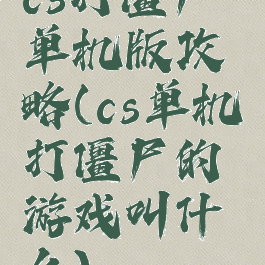 cs打僵尸
单机版攻
略(cs单机
打僵尸的
游戏叫什
么)